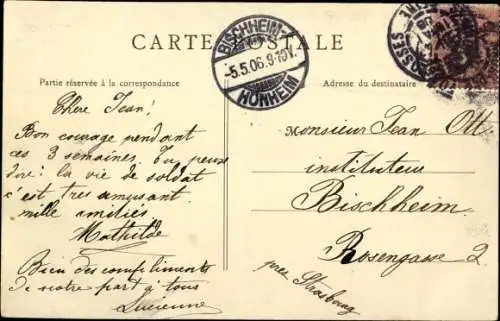 CARTE POSTALE
BISCHHEIM-
5.5.06.9-10V.
HÖNHEIM
Partie réservée à la correspondance
Adresse du destinataire
Chère Jean!
Bon courage pendant
ces 3 semaines. Tu peux
dire: la vie de soldat
c'est très amusant.
mille amitiés
Mathilde
Bien des compliments
de notre part à tous
Lucienne
Monsieur Jean Ott
instituteur
Bischheim.
Rosengasse 2.
près Strasbourg